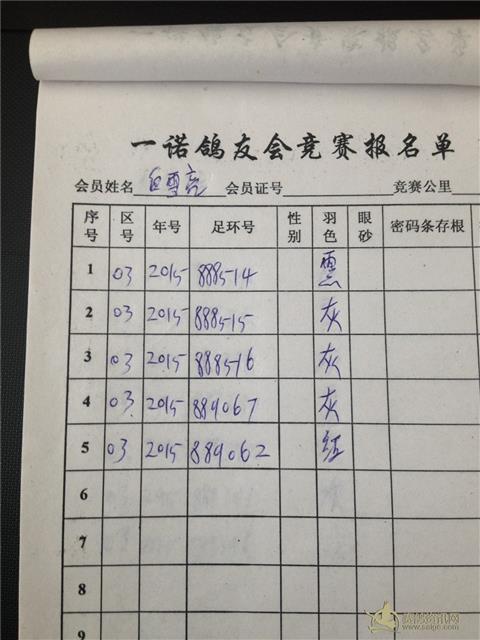 一诺鸽友会竞赛报名单
会员姓名 白雪亮 会员证号 竞赛公里
序号 区号 年号 足环号 性别 羽色 眼砂 密码条存根
1 03 2015 888514 黑
2 03 2015 888515 灰
3 03 2015 888516 灰
4 03 2015 889067 灰
5 03 2015 889062 红
6
7
8
9
www.saige.com